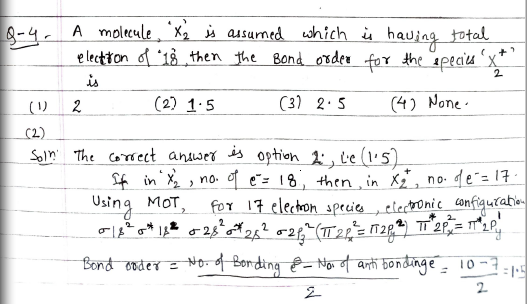 Q-4. A molecule, 'X₂' is assumed which is having total
electron of '18', then the Bond order for the species 'X₂⁺'
is
(1) 2 (2) 1.5 (3) 2.5 (4) None.
(2)
Soln: The correct answer is option 2, i.e (1.5)
If in 'X₂', no. of e⁻= 18, then, in X₂⁺, no. of e⁻= 17.
Using MOT, For 17 electron species, electronic configuration
σ1s² σ*1s² σ2s² σ*2s² σ2p_z² (π2p_x²= π2p_y²) π*2p_x²= π*2p_y¹
Bond order = No. of Bonding e⁻ - No. of antibonding e⁻ = 10-7 = 1.5
2 2